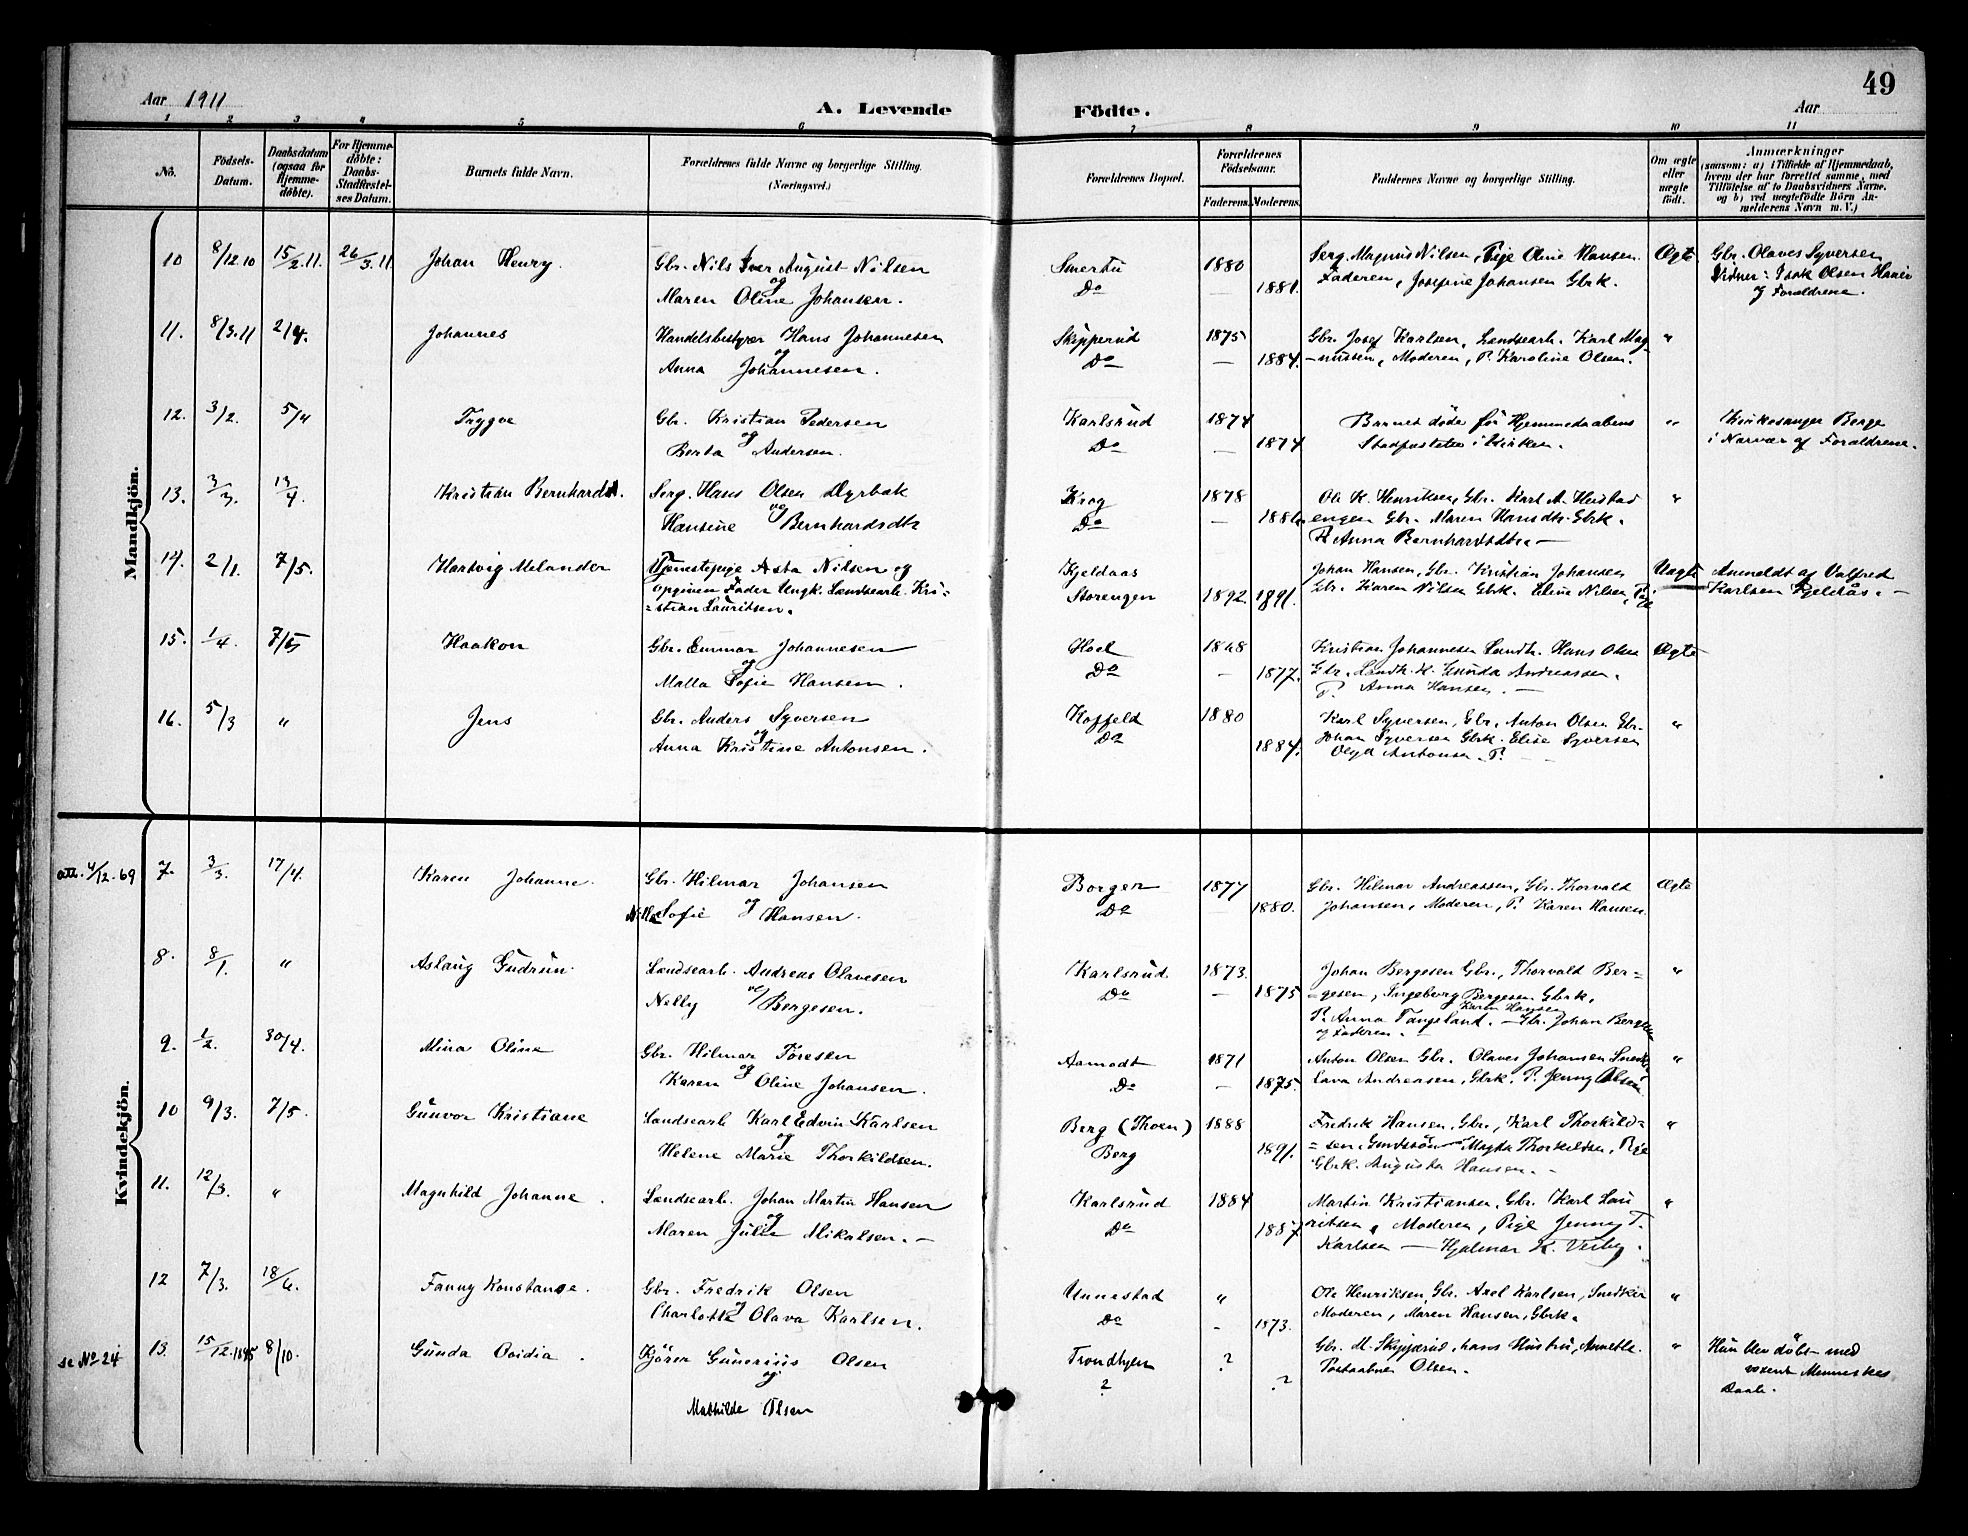 49
Aar 1911
A. Levende
Födte.
Aar
1 2 3 4 5 6 7 8 9 10 11
No.
Födsels-
Datum.
Daabsdatum
(ogsaa for
Hjemme-
döbte).
For Hjemme-
döbte:
Daabs-
Stadfæstel-
ses Datum.
Barnets fulde Navn.
Forældrenes fulde Navne og borgerlige Stilling.
(Næringsvei.)
Forældrenes Bopæl.
Forældrenes
Födselsaar.
Faderens. Moderens.
Faddernes Navne og borgerlige Stilling.
Om ægte
eller
uægte
födt.
Anmærkninger
(saasom: a) i Tilfælde af Hjemmedaab,
hvem der har forrettet samme, med
Tilföielse af to Daabsvidners Navne.
og b) ved uægtefödte Börn An-
melderens Navn m. V.)
Mandkjön.
10 8/12.10 15/2.11. 26/3.11 Johan Henry. Gbr. Nils Iver August Nilsen
og
Maren Oline Johansen.
Smertu 1880
Do — 1881.
Serg. Magnus Nilsen, Pige Oline Hansen.
Faderen, Josefine Johansen Gbrk.
Ægte
Gbr. Olaves Syversen
Vidner: Isak Olsen
og Forældrene.
11. 8/3.11 2/4. Johannes Handelsbestyrer Hans Johannesen
og
Anna Johannesen.
Skipperud 1875
Do — 1884.
Gbr. Josef Karlsen, Landsearb. Karl Mag-
-nussen, Moderen, P. Karoline Olsen.
"
12. 3/2. 5/4 Trygve Gbr. Kristian Pedersen
og
Berta Andersen.
Karlsrud 1874
Do — 1874
Barnet döde för Hjemmedaabens
Stadfæstelse i Kirken.
"
Kirkesanger Berge
i Narvær af Forældrene.
13. 3/3. 17/4. Kristian Bernhard. Serg. Hans Olsen Dyrbak
og
Hansine Bernhardsdtr
Krog 1878
Do — 1886
Ole K. Henriksen, Gbr. Karl A.
engen Gbr. Maren Hansdtr. Gbrk.
P. Anna Bernhardsdtr. —
"
14. 2/1. 7/5. Hartvig Melander Tjenestepige Asta Nilsen og
opgiven Fader Ungk. Landsearb. Kri-
=stian Lauritsen.
Kjeldaas
Storengen 1892. 1891.
Johan Hansen, Gbr. Kristian Johansen
Gbr. Karen Nilsen Gbrk. Eline Nilsen, Pige
Uægte
Anmeldt af Valfred
Karlsen Kjeldås. —
15. 1/4. 7/5 Haakon Gbr. Emmar Johannesen
og
Malla Sofie Hansen.
Hoel 1868
Do — 1877.
Kristian Johannesen Landh. Hans Olsen
Gbr. Landh. H. Gunda Andreassen.
P. Anna Hansen. —
Ægte
16. 5/3 " Jens Gbr. Anders Syversen
og
Anna Kristine Antonsen.
Koffeld 1880
Do 1884.
Karl Syversen, Gbr. Anton Olsen Gbr.
Johan Syversen Gbrk. Elise Syversen
Antonsen P.
"
Kvindekjön.
att. 4/12.69 7. 3/3. 17/4. Karen Johanne. Gbr. Hilmar Johansen
og
Sofie Hansen.
Borgen 1877
Do — 1880.
Gbr. Hilmar Andreassen, Gbr. Thorvald
Johansen, Moderen, P. Karen Hansen.
Ægte
8. 8/1. " Aslaug Gudrun Landsearb. Andreas Olavesen
og
Nelly Bergesen.
Karlsrud 1873.
Do — 1875
Johan Bergesen Gbr., Thorvald Ber=
=gesen, Ingeborg Bergesen. Gbrk.
Karen Hansen
P. Anna Tangeland. — Gbr. Johan Bergesen
og Faderen.
"
9. 1/2. 30/4. Mina Oline Gbr. Hilmar Toresen
og
Karen Oline Johansen.
Aamodt 1871
Do — 1875.
Anton Olsen Gbr. Olaves Johansen Snedker
Lava Andreasen, Gbrk. P. Jenny Olsen
"
10 9/3. 7/5. Gunvor Kristiane Landsearb. Karl Edvin Karlsen
og
Helene Marie Thorkildsen.
Berg (Thoen) 1888
Berg 1891.
Fredrik Hansen, Gbr., Karl Thorkild=
=sen Magda Thorkildsen, Pige
Gbrk. Augusta Hansen. —
"
11. 12/3. " Magnhild Johanne. Landsearb. Johan Martin Hansen
og
Maren Julie Mikalsen. —
Karlsrud 1884
Do 1887
Martin Kristiansen, Gbr. Karl Lau
ritsen, Moderen, Pige Jenny T.
Karlsen — Hjalmar K. Verby.
"
12 7/3. 18/6. Fanny Konstanse. Gbr. Fredrik Olsen
og
Charlotte Olava Karlsen.
Unnestad "
Do — 1873.
Ole Henriksen, Gbr. Axel Karlsen, Snedker
Moderen, Maren Hansen, Gbrk.
"
se No 24 13. 15/12.1895 8/10. Gunda Ovidia. Kjörer Gunerius Olsen
og
Mathilde Olsen
Trondhjem ?
? ?
Gbr. M. Skipperud, hans Hustru, Annette
Postaabner Olsen.
"
Hun blev döbt med
voxent Menneskes
Daab.